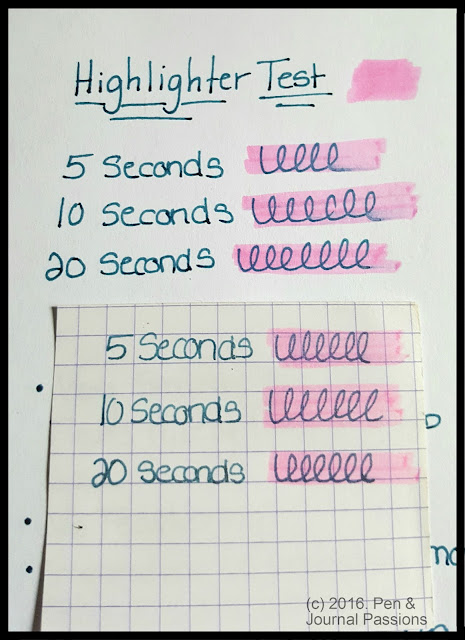 Highlighter Test
5 Seconds
10 Seconds
20 Seconds
5 Seconds
10 Seconds
20 Seconds
(c) 2016. Pen &
Journal Passions